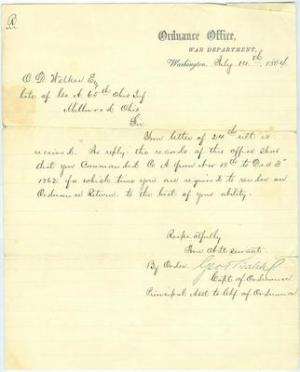 Ordnance Office,
WAR DEPARTMENT,
Washington July 14th 1864
O D Welker Esq
late of Co A 65th Ohio Inf.
Millwood Ohio
Sir
Your letter of 24th ult. is
received. In reply the records of this office show
that you Commanded Co A from Nov 18th to Dec 3d
1862 for which time you are required to render an
Ordnance Return to the best of your ability.
Respectfully
Your Obt Servant
By Order Geo T Balch
Capt of Ordnance
Principal Asst to Chf of Ordnance